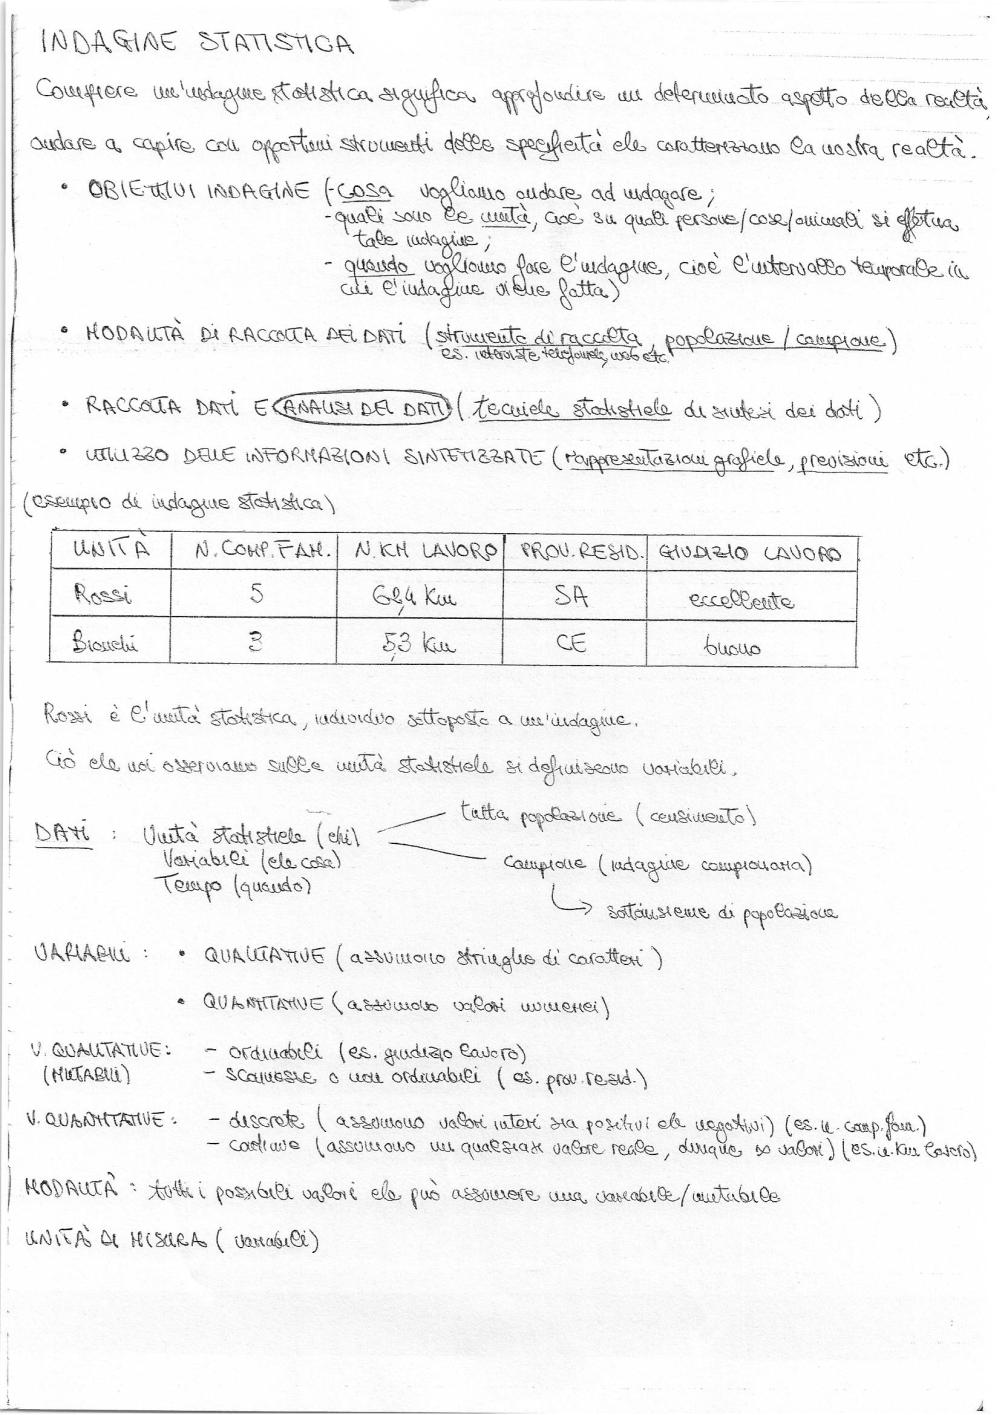 INDAGINE STATISTICA
Compiere un'indagine statistica significa approfondire un determinato aspetto della realtà,
andare a capire con opportuni strumenti delle specificità che caratterizzano la nostra realtà.
• OBIETTIVI INDAGINE (- COSA vogliamo andare ad indagare;
- quali sono le unità, cioè su quali persone/cose/animali si effettua
tale indagine;
- quando vogliamo fare l'indagine, cioè l'intervallo temporale in
cui l'indagine viene fatta)
• MODALITÀ DI RACCOLTA DEI DATI (strumento di raccolta, popolazione / campione)
es. interviste telefoniche, web etc.
• RACCOLTA DATI E ANALISI DEI DATI (tecniche statistiche di sintesi dei dati)
• UTILIZZO DELLE INFORMAZIONI SINTETIZZATE (rappresentazioni grafiche, previsioni etc.)
(esempio di indagine statistica)
UNITÀ N. COMP. FAM. N. KM LAVORO PROV. RESID. GIUDIZIO LAVORO
Rossi 5 68,4 Km SA eccellente
Bianchi 3 5,3 Km CE buono
Rossi è l'unità statistica, individuo sottoposto a un'indagine.
Ciò che noi osserviamo sulle unità statistiche si definiscono variabili.
DATI : Unità statistiche (chi)
Variabili (che cosa)
Tempo (quando)
tutta popolazione (censimento)
Campione (indagine campionaria)
↳ sottoinsieme di popolazione
VARIABILI : • QUALITATIVE (assumono stringhe di caratteri)
• QUANTITATIVE (assumono valori numerici)
V. QUALITATIVE : - ordinabili (es. giudizio lavoro)
(MUTABILI) - sconnesse o non ordinabili (es. prov. resid.)
V. QUANTITATIVE : - discrete (assumono valori interi sia positivi che negativi) (es. n. comp. fam.)
- continue (assumono un qualsiasi valore reale, dunque ∞ valori) (es. n. Km lavoro)
MODALITÀ : tutti i possibili valori che può assumere una variabile/mutabile
UNITÀ DI MISURA (variabili)